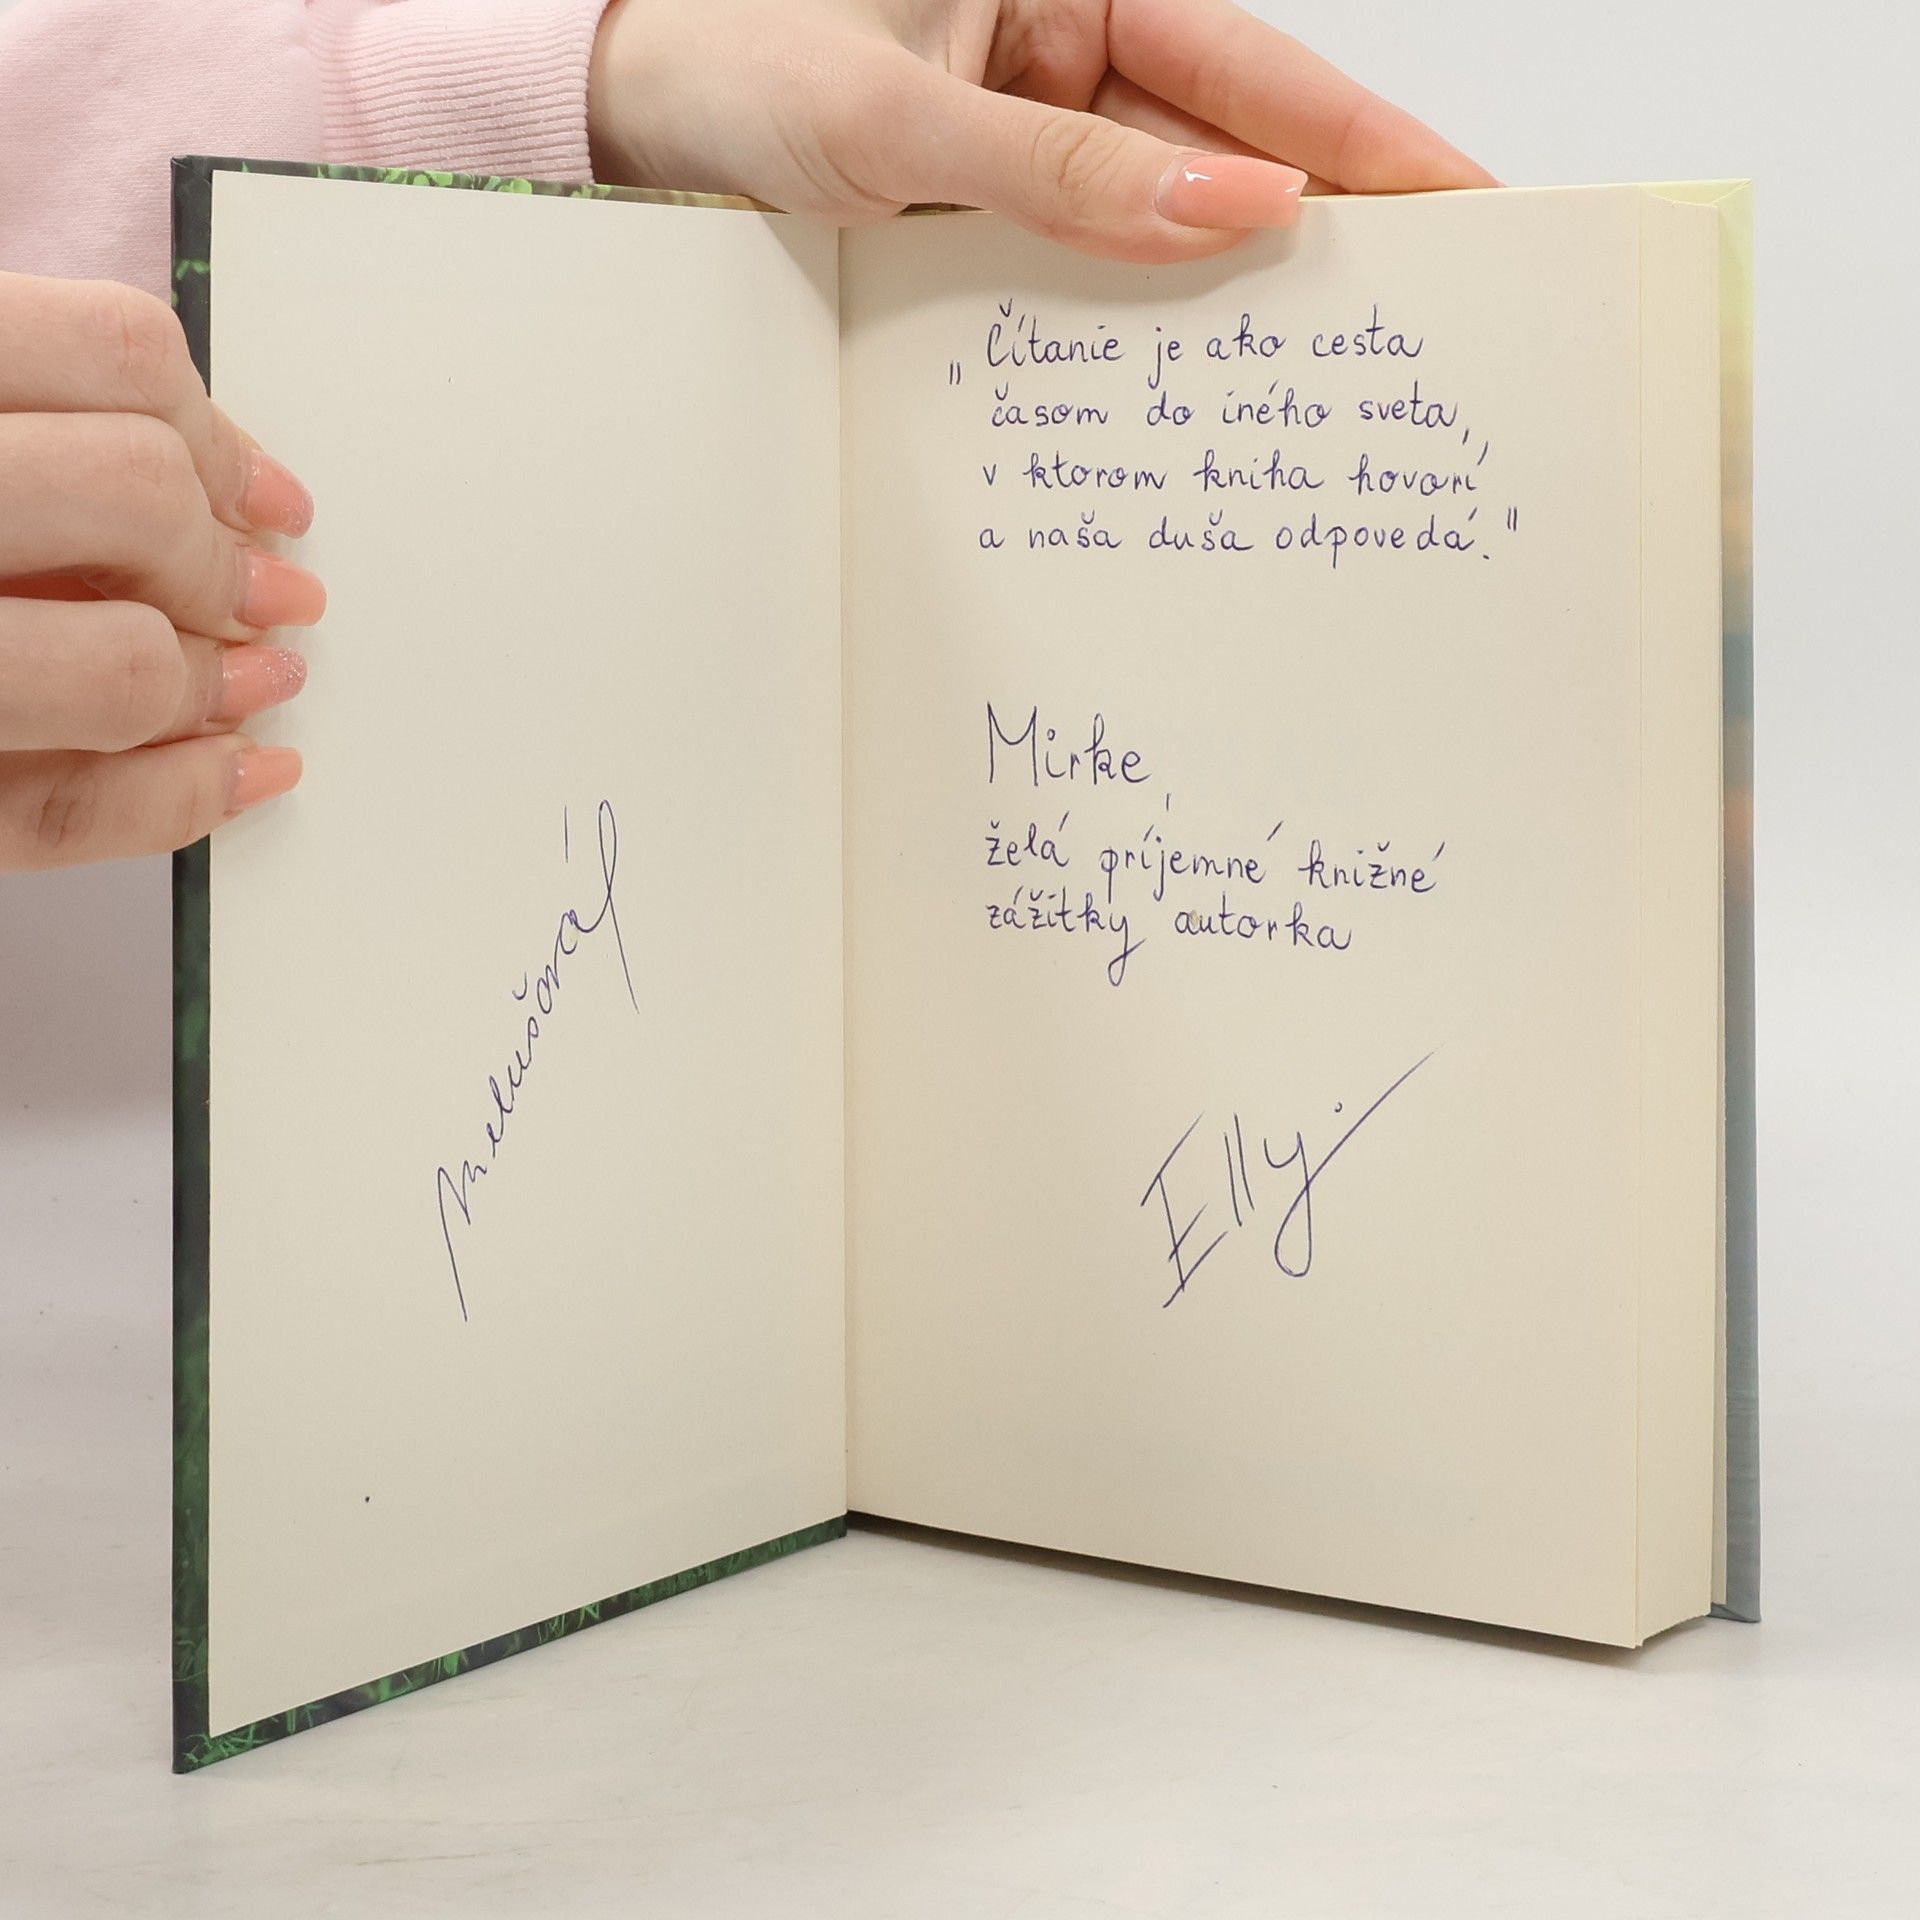 Melušová
„Čítanie je ako cesta
časom do iného sveta,
v ktorom kniha hovorí
a naša duša odpovedá."
Mirke,
želá príjemné knižné
zážitky autorka
Elly.